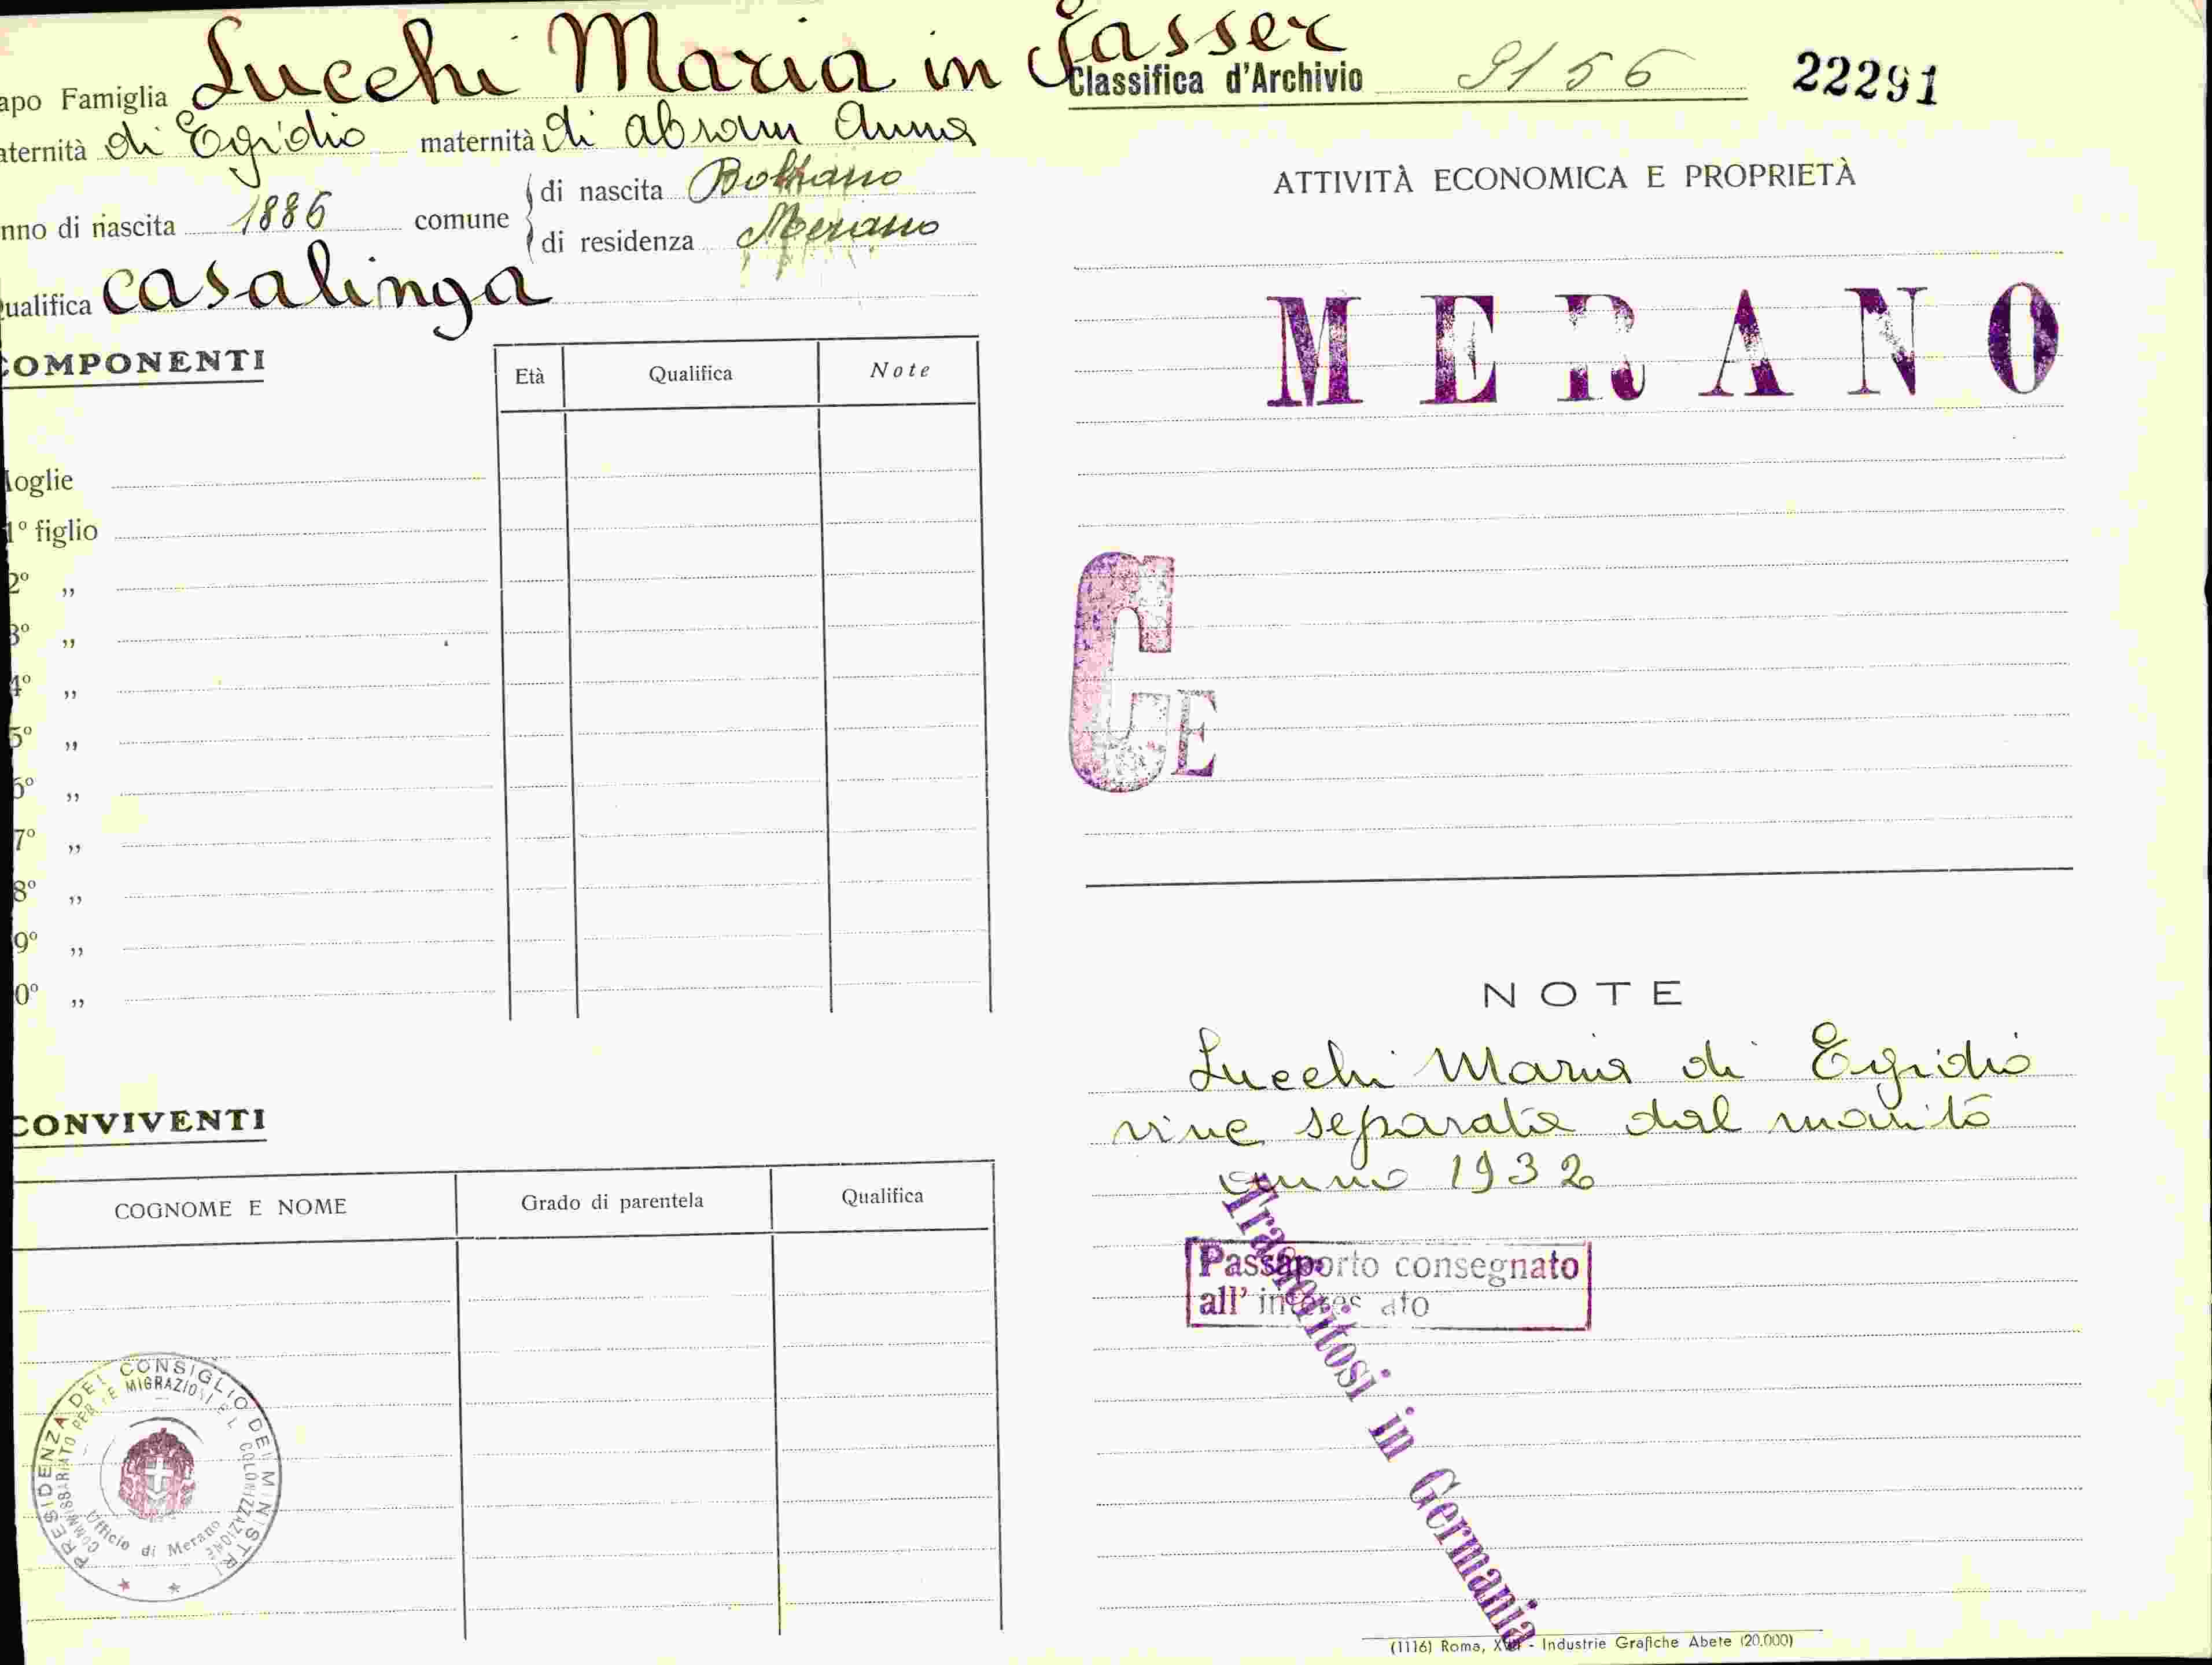 apo Famiglia Lucchi Maria in Passer
aternità di Egidio maternità di Abram Anna
nno di nascita 1886 comune di nascita Bolzano
di residenza Merano
ualifica casalinga
COMPONENTI
Età Qualifica Note
loglie
1° figlio
2° „
3° „
4° „
5° „
6° „
7° „
8° „
9° „
0° „
CONVIVENTI
COGNOME E NOME Grado di parentela Qualifica
PRESIDENZA DEL CONSIGLIO DEI MINISTRI
COMMISSARIATO PER LE MIGRAZIONI E L COLONIZZAZIONE
Ufficio di Merano
Classifica d'Archivio 9156 22291
ATTIVITÀ ECONOMICA E PROPRIETÀ
MERANO
CE
NOTE
Lucchi Maria di Egidio
vive separata dal marito
anno 1932
Passaporto consegnato
all' interes ato
Trasferitosi in Germania
(1116) Roma, - Industrie Grafiche Abete (20.000)